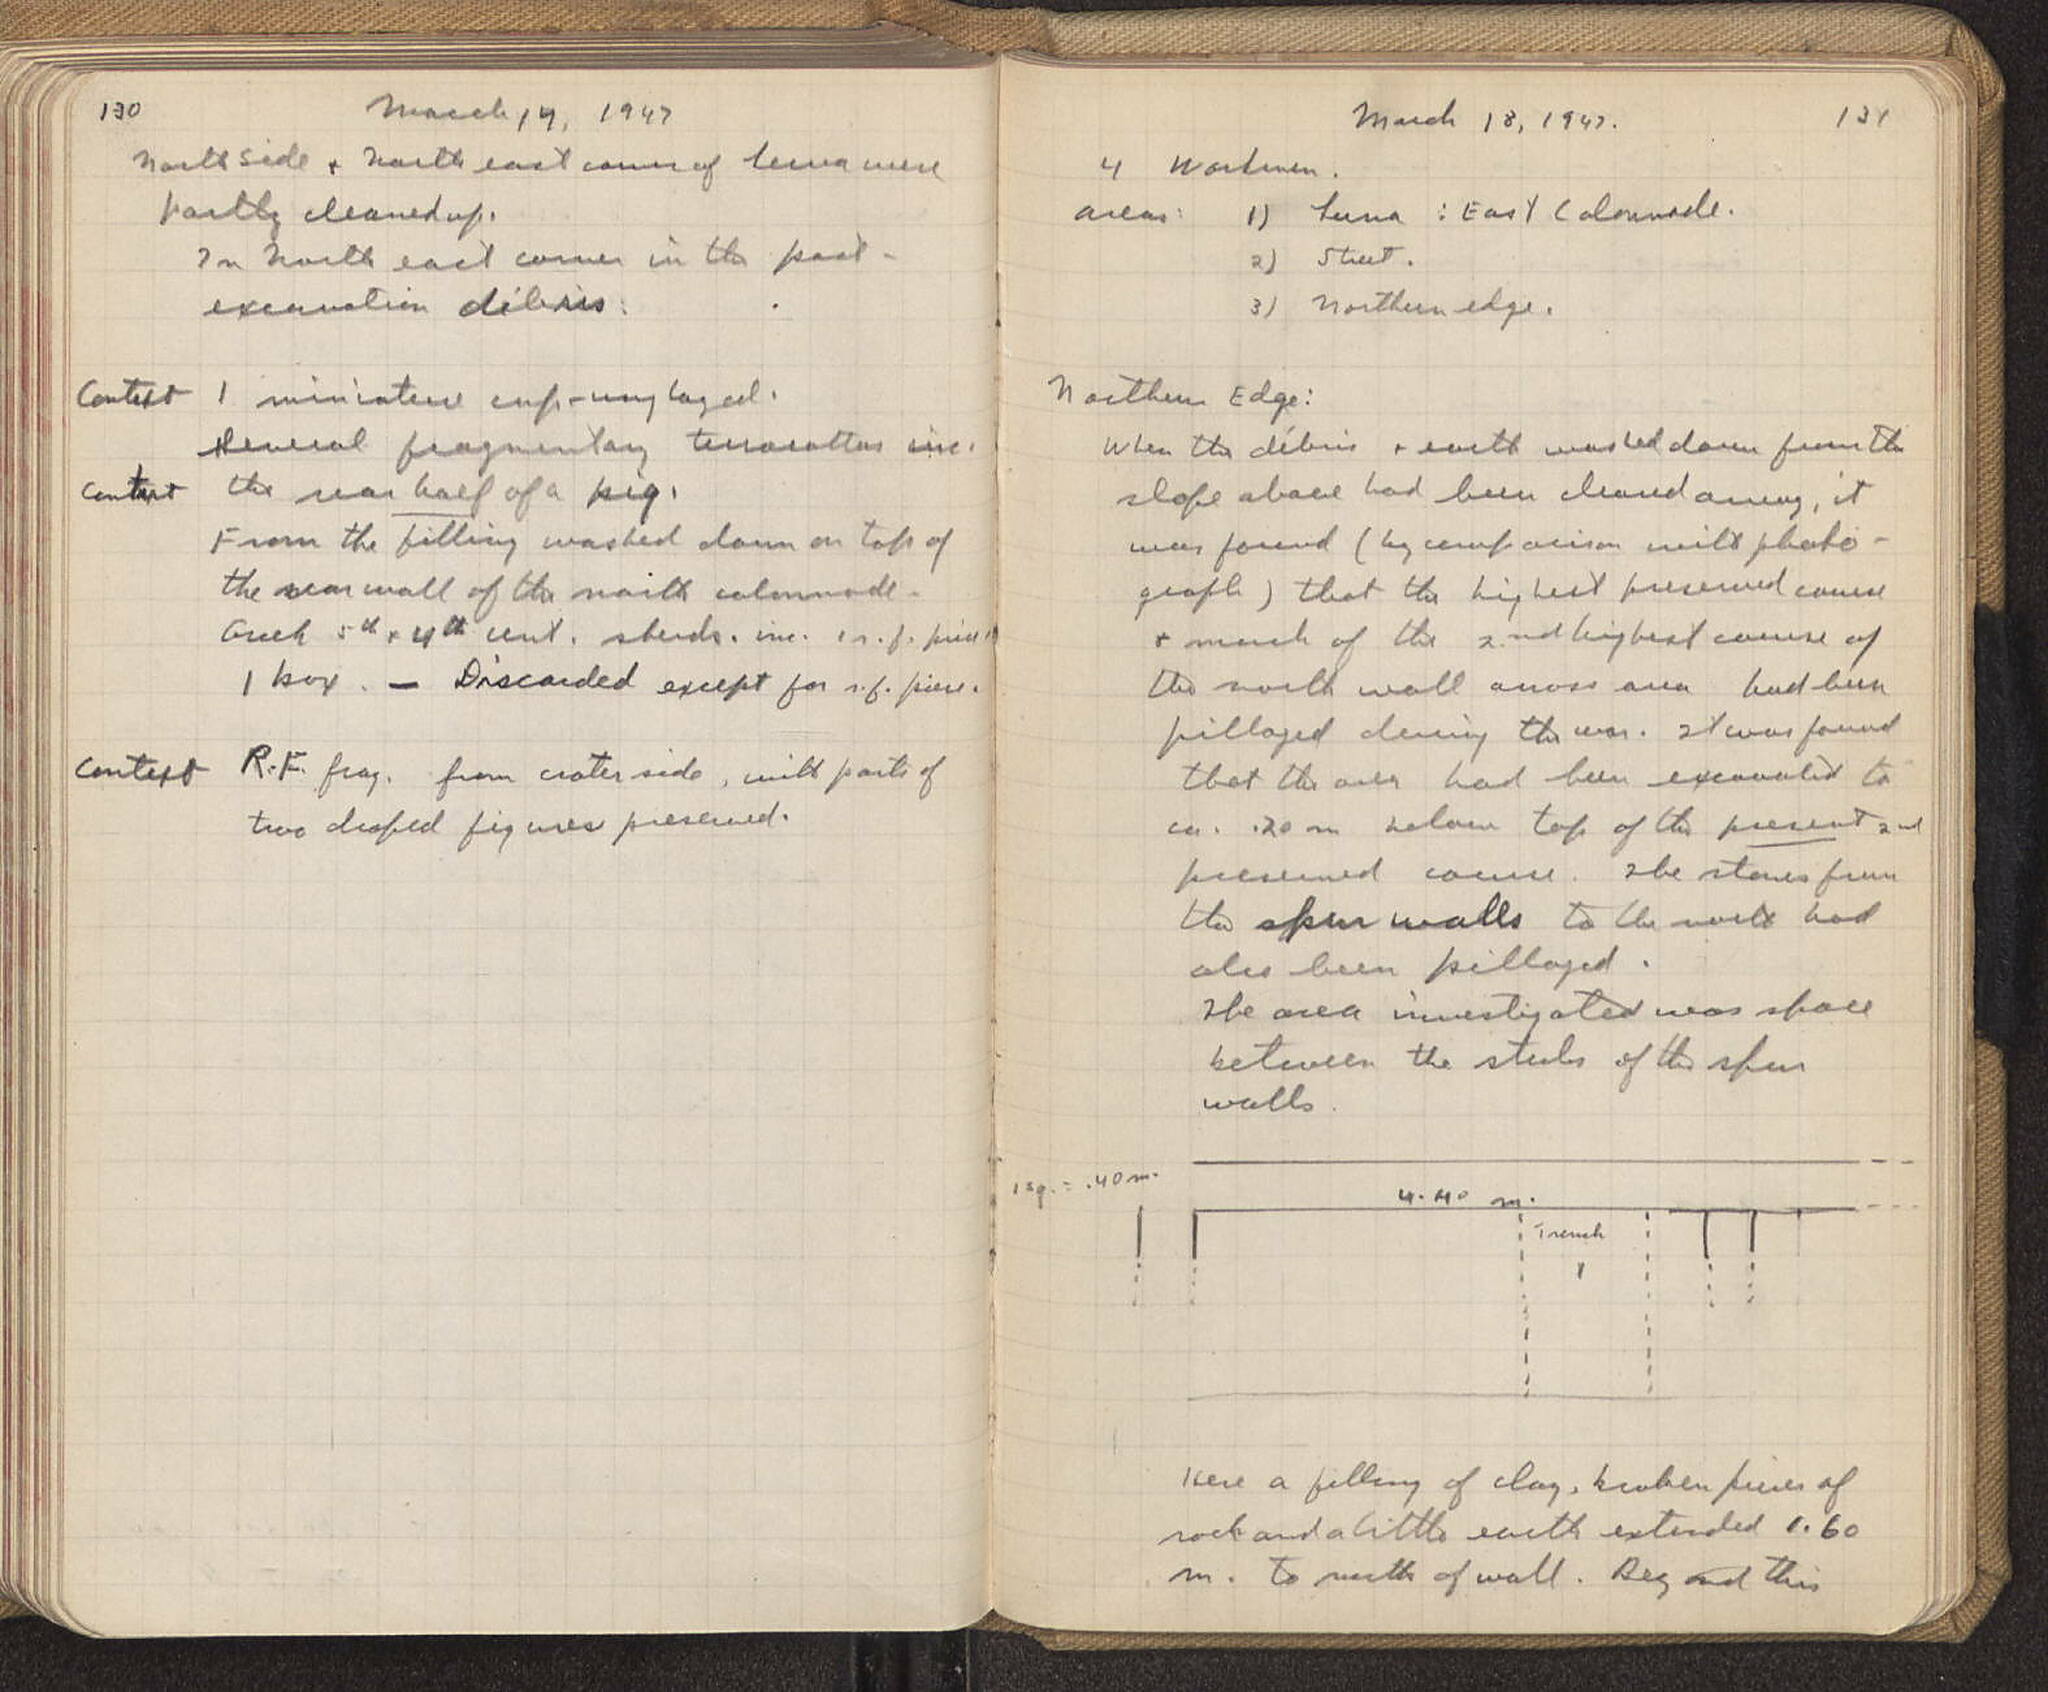 130
March 17, 1947
North side + North east corner of Lerna were
partly cleaned up.
In North east corner in the post-
excavation débris:
Context 1 miniature cup - unglazed.
Several fragmentary terracottas inc.
Context the rear half of a pig.
From the filling washed down on top of
the rear wall of the north colonnade -
Greek 5th + 4th cent. sherds. inc. 1 r.f. piece
1 box. — Discarded except for r.f. piece.
Context R.F. frag. from crater side, with parts of
two draped figures preserved.
March 18, 1947.
131
4 Workmen.
Areas: 1) Lerna : East Colonnade.
2) Street.
3) Northern edge.
Northern Edge:
When the débris + earth washed down from the
slope above had been cleared away, it
was found (by comparison with photo-
graph) that the highest preserved course
+ much of the 2nd highest course of
the north wall across area had been
pillaged during the war. It was found
that the area had been excavated to
ca. .20 m below top of the present 2nd
preserved course. The stones from
the spur walls to the north had
also been pillaged.
The area investigated was space
between the stubs of the spur
walls.
1 sq. = .40 m.
4.40 m.
Trench
1
Here a filling of clay, broken pieces of
rock and a little earth extended 1.60
m. to north of wall. Beyond this